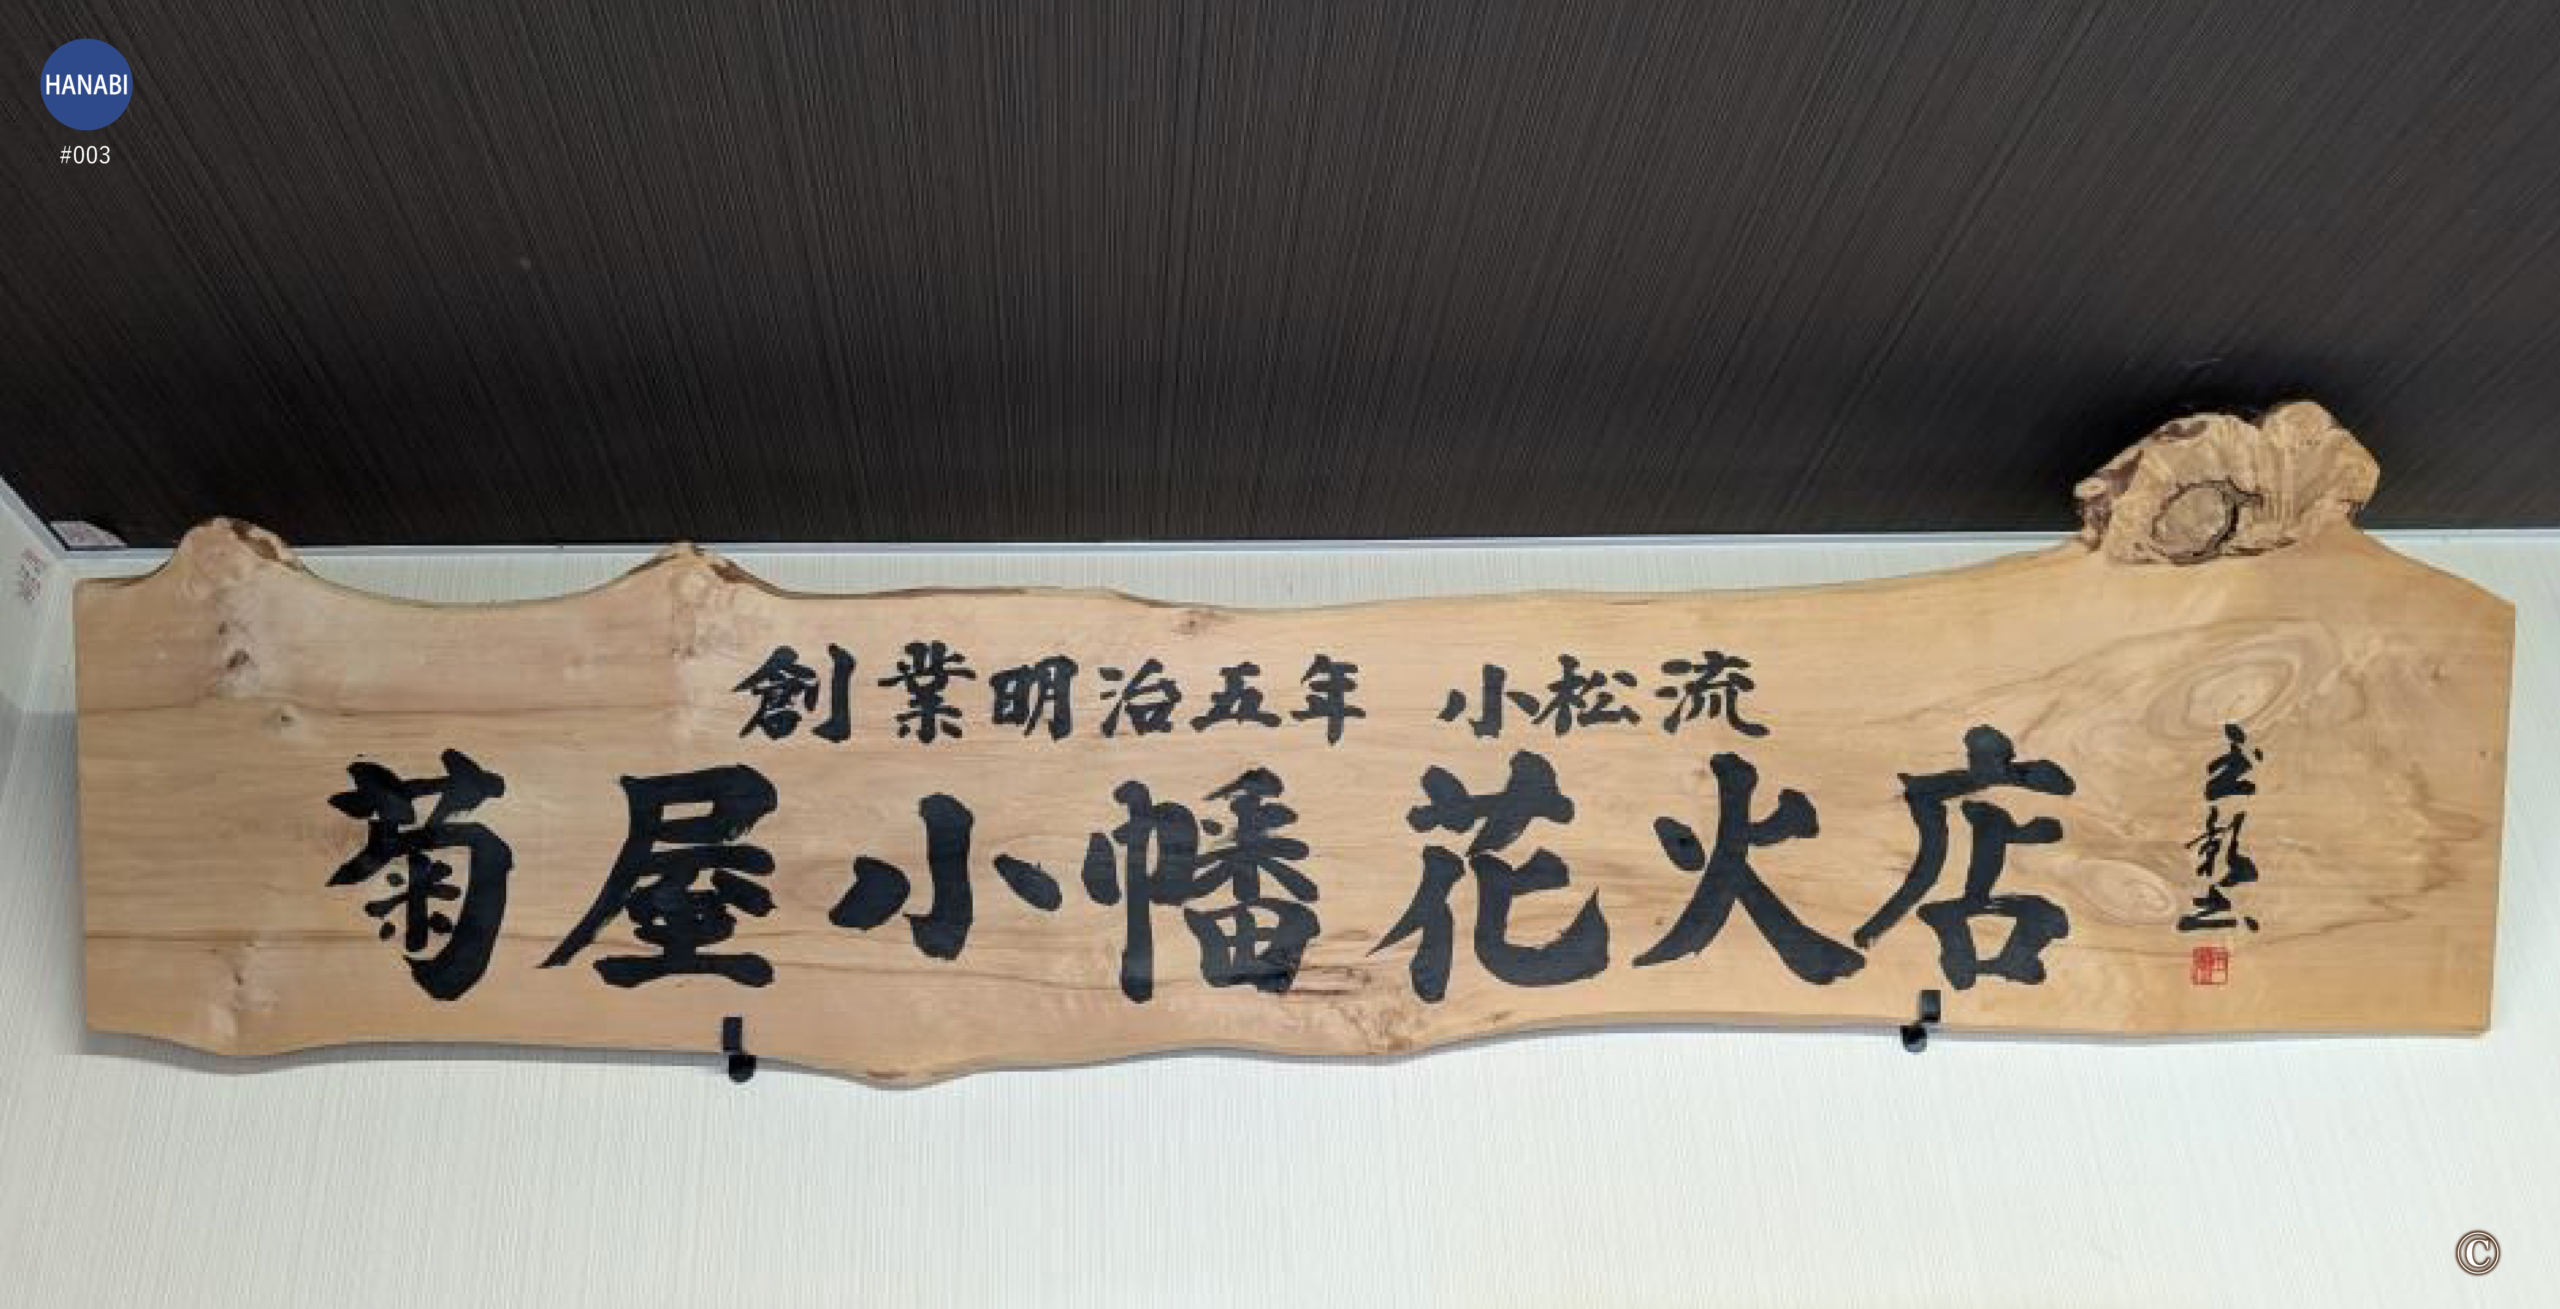 HANABI
#003
創業明治五年 小松流
菊屋小幡花火店
©